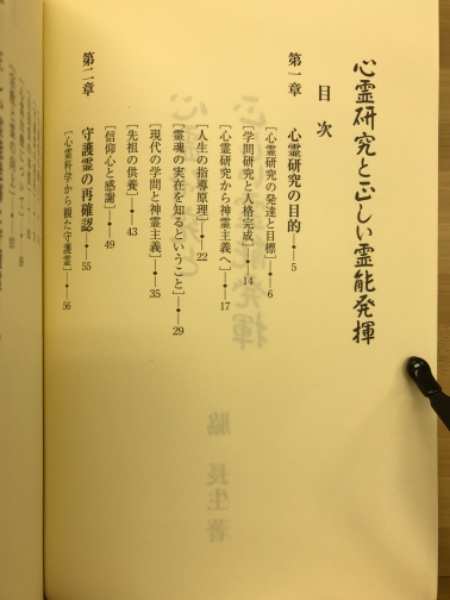 心霊研究と正しい霊能発揮
目次
第一章 心霊研究の目的—•—5
[心霊研究の発達と目標]—•—6
[学問研究と人格完成]—•—14
[心霊研究から神霊主義へ]—•—17
[人生の指導原理]—•—22
[霊魂の実在を知るということ]—•—29
[現代の学問と神霊主義]—•—35
[先祖の供養]—•—43
[信仰心と感謝]—•—49
第二章 守護霊の再確認—•—55
[心霊科学から観た守護霊]—•—56
脇長生著